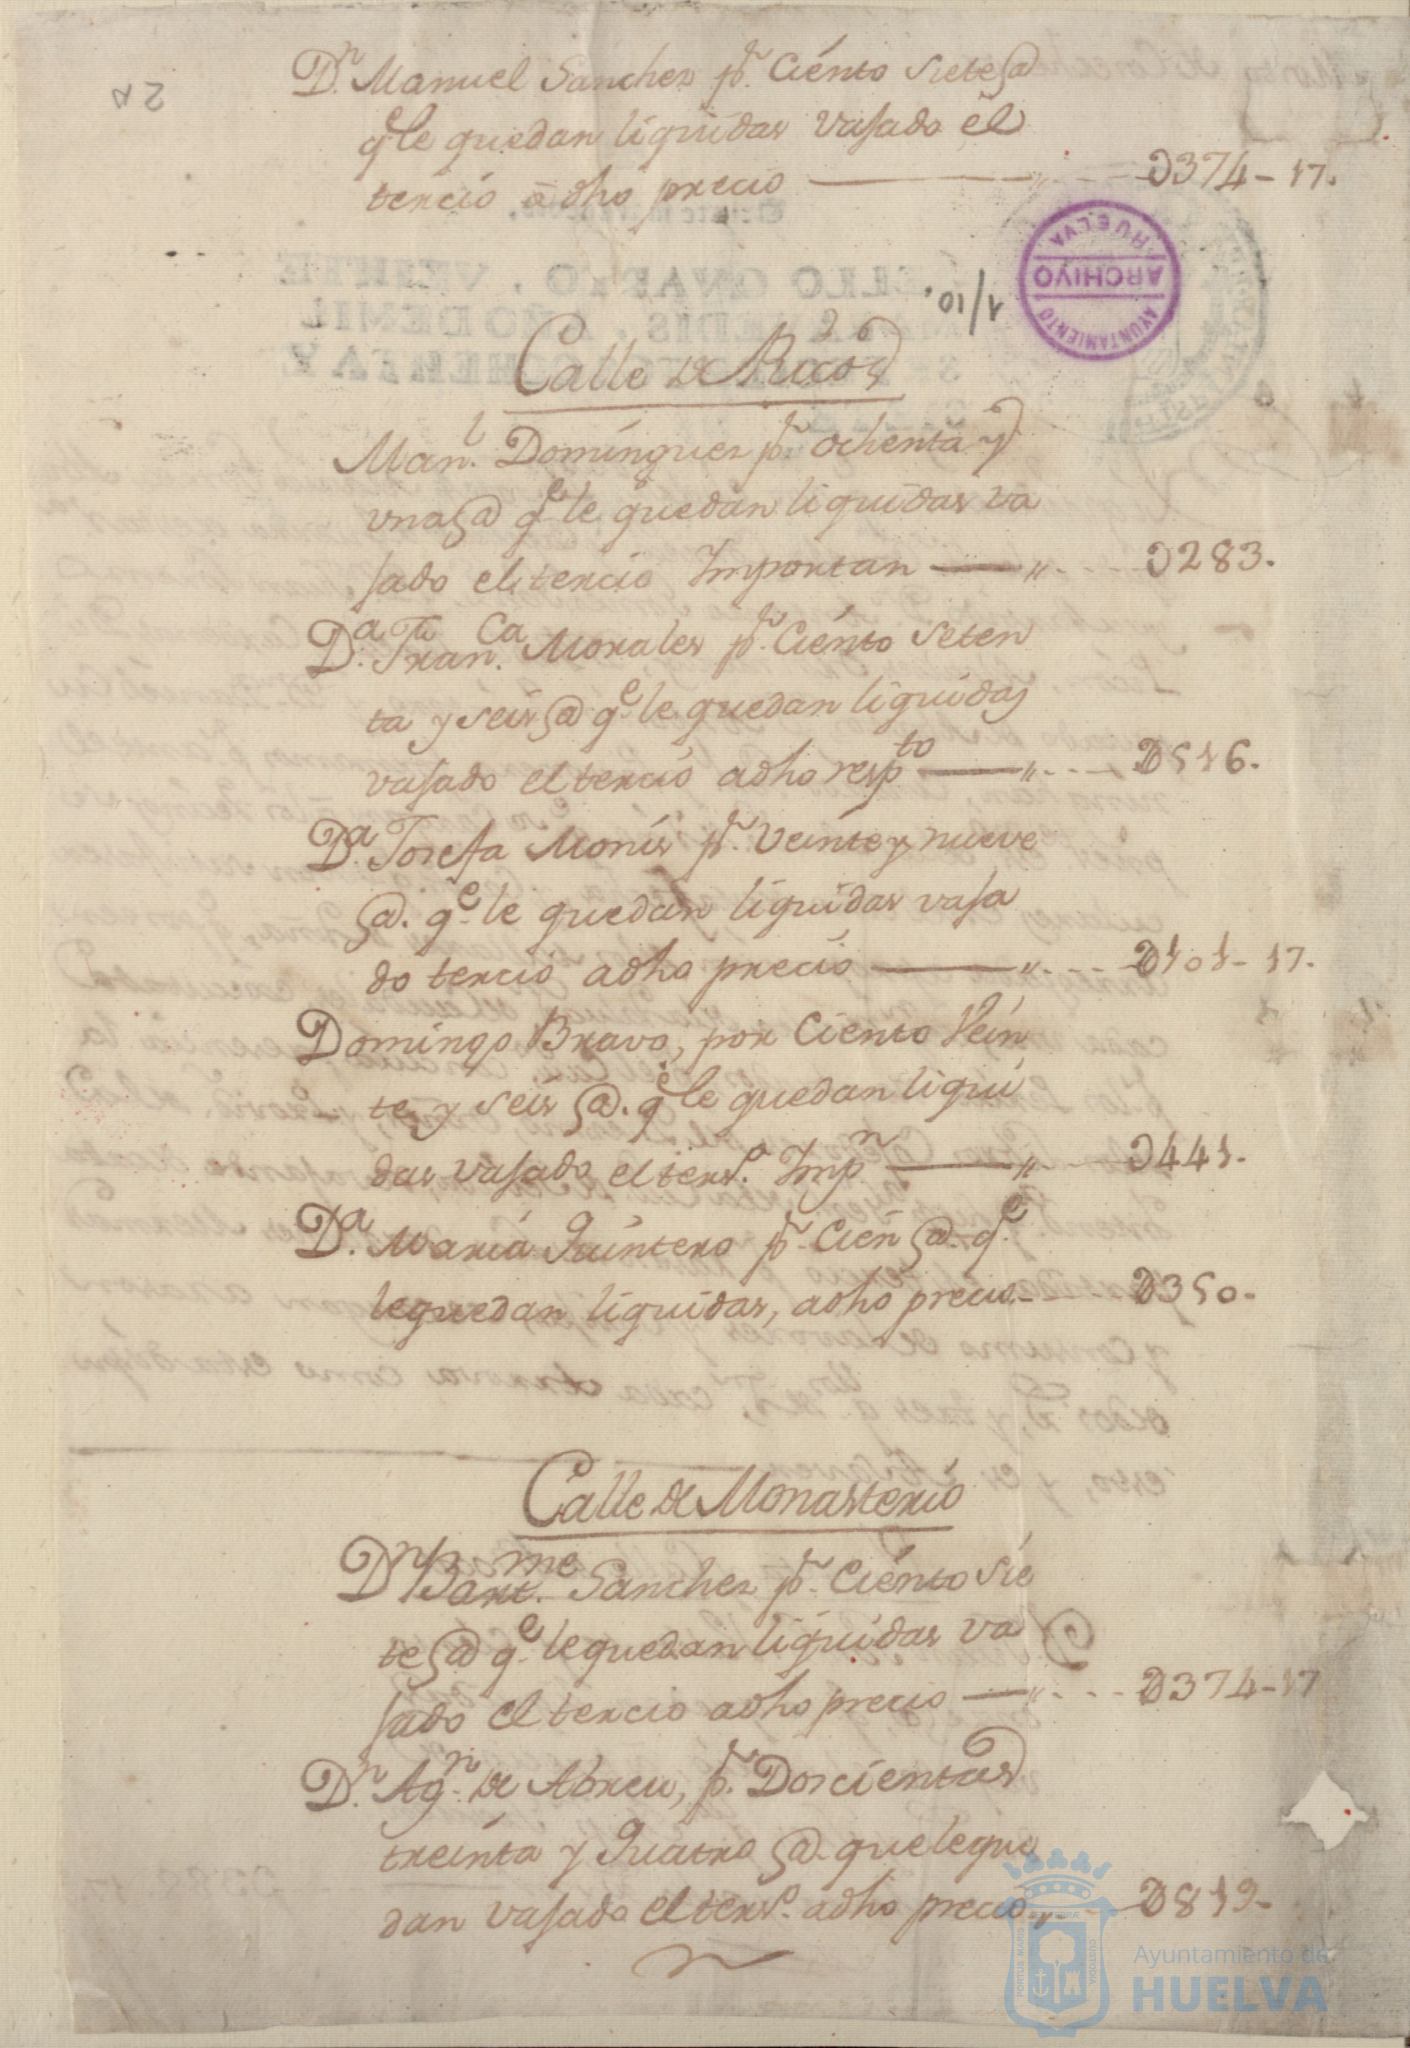 Dn. Manuel Sanchez pr. Ciento siete @
qe le quedan liquidas vasado el
tercio a dho precio — " - - - D374 - 17.
Calle de Ricos
Manl. Dominguez pr. ochenta y
una @ qe le quedan liquidas va
sado el tercio Importan — " - - - D283.
Da. Franca. Morales pr. Ciento seten
ta y seis @ qe. le quedan liquidas
vasado el tercio a dho respto — " - - - D616.
Da. Josefa Monis pr. Veinte y nueve
@. qe. le quedan liquidas vasa
do tercio a dho precio — " - - - D101 - 17.
Domingo Bravo, por Ciento Vein
te y seis @. qe le quedan liqui
das vasado el terso. Impn — " - - - D441.
Da. Maria Quintero pr. Cien @. qe.
le quedan liquidas, a dho precio - - - D350.
Calle de Monasterio
Dn Bartme. Sanchez pr. Ciento sie
te @ qe. le quedan liquidas va
sado el tercio a dho precio — " - - - D374 - 17
Dn. Agn. de Abreu, pr. Doscientas
treinta y quatro @. que le que
dan vasado el terso. a dho precio - - D819 -
1/10.
AYUNTAMIENTO
ARCHIVO
HUELVA
PORTUS MARIS
CUSTODIA
Ayuntamiento de
HUELVA